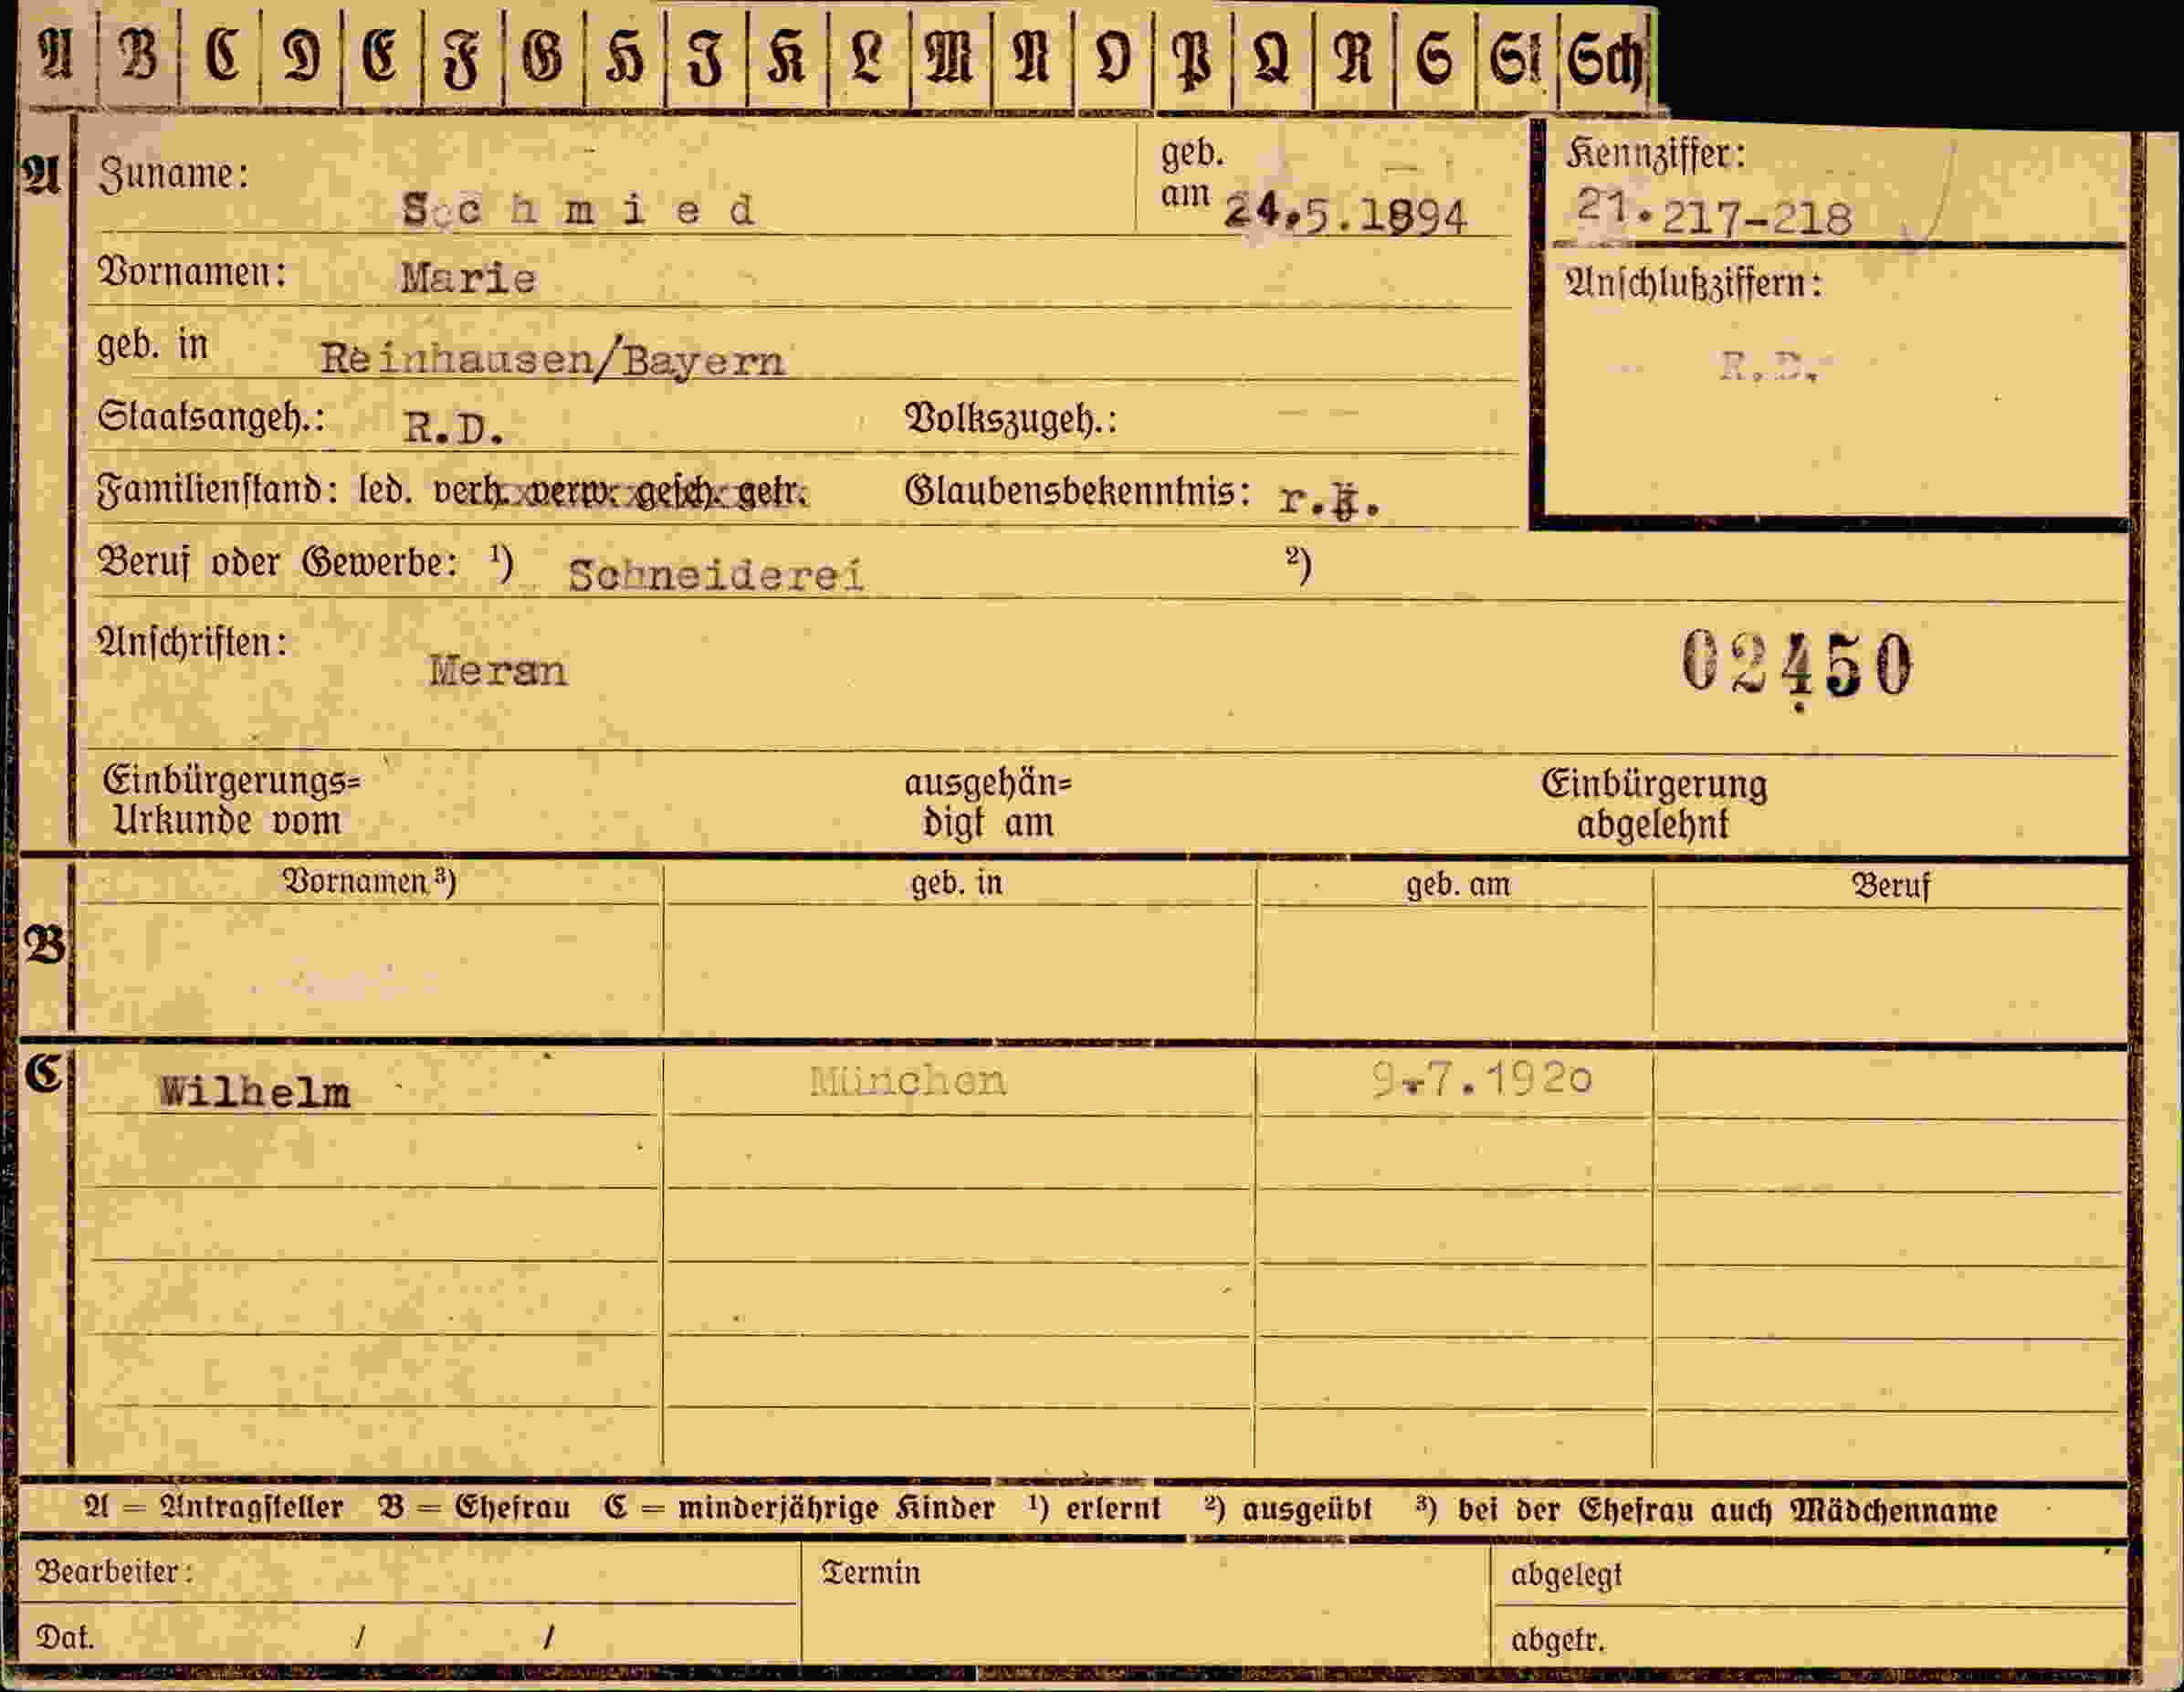 A B C D E F G H I K L M N O P Q R S St Sch
A Zuname: Schmied geb. am 24.5.1894 Kennziffer: 21.217-218
Vornamen: Marie Anschlußziffern:
geb. in Reinhausen/Bayern R.D.
Staatsangeh.: R.D. Volkszugeh.:
Familienstand: led. verh. verw. gesch. getr. Glaubensbekenntnis: r.k.
Beruf oder Gewerbe: ¹) Schneiderei ²)
Anschriften: Meran 02450
Einbürgerungs= ausgehän= Einbürgerung
Urkunde vom digt am abgelehnt
Vornamen ³) geb. in geb. am Beruf
B
C Wilhelm München 9.7.1920
A = Antragsteller B = Ehefrau C = minderjährige Kinder ¹) erlernt ²) ausgeübt ³) bei der Ehefrau auch Mädchenname
Bearbeiter: Termin abgelegt
Dat. / / abgetr.